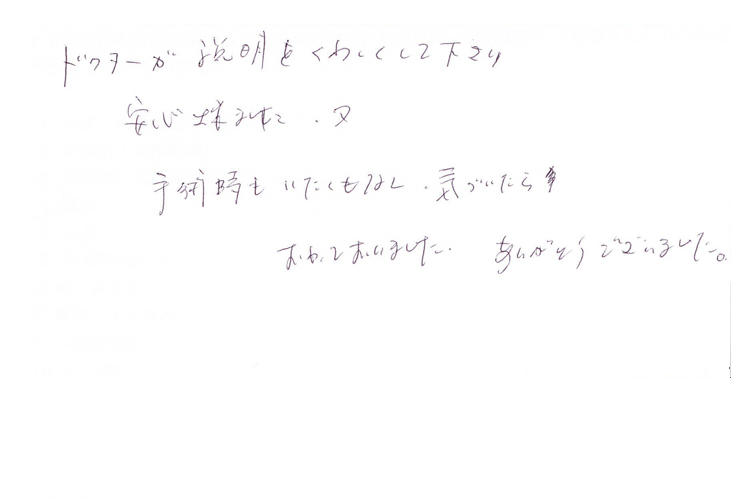 ドクターが説明をくわしくして下さり
安心出来ました．又
手術時もいたくもなし．気づいたら
おわっておりました．ありがとうございました。